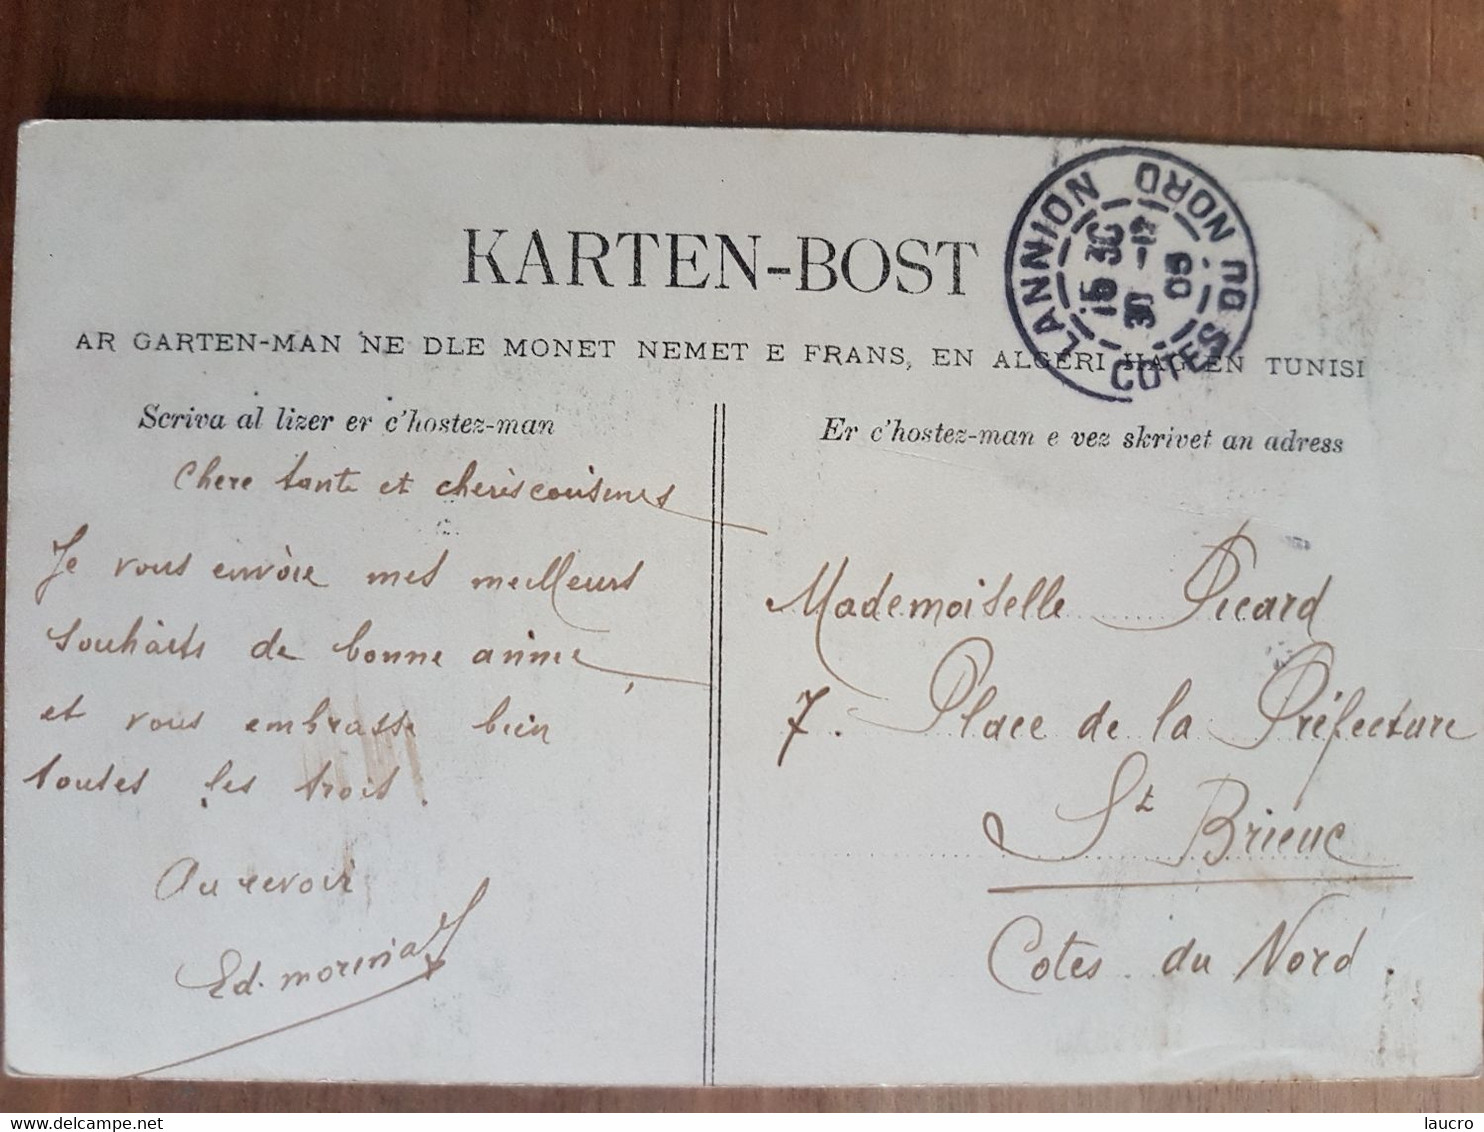 KARTEN-BOST
LANNION
COTES DU NORD
15 30
30 -12
09
AR GARTEN-MAN NE DLE MONET NEMET E FRANS, EN ALGERI HAG EN TUNISI
Scriva al lizer er c'hostez-man
Chere tante et cheriscousines
Je vous envoie mes meilleurs
souhaits de bonne année,
et vous embrasse bien
toutes les trois.
Au revoir
Ed.
Er c'hostez-man e vez skrivet an adress
Mademoiselle Picard
7. Place de la Préfecture
St Brieuc
Cotes du Nord.
laucro